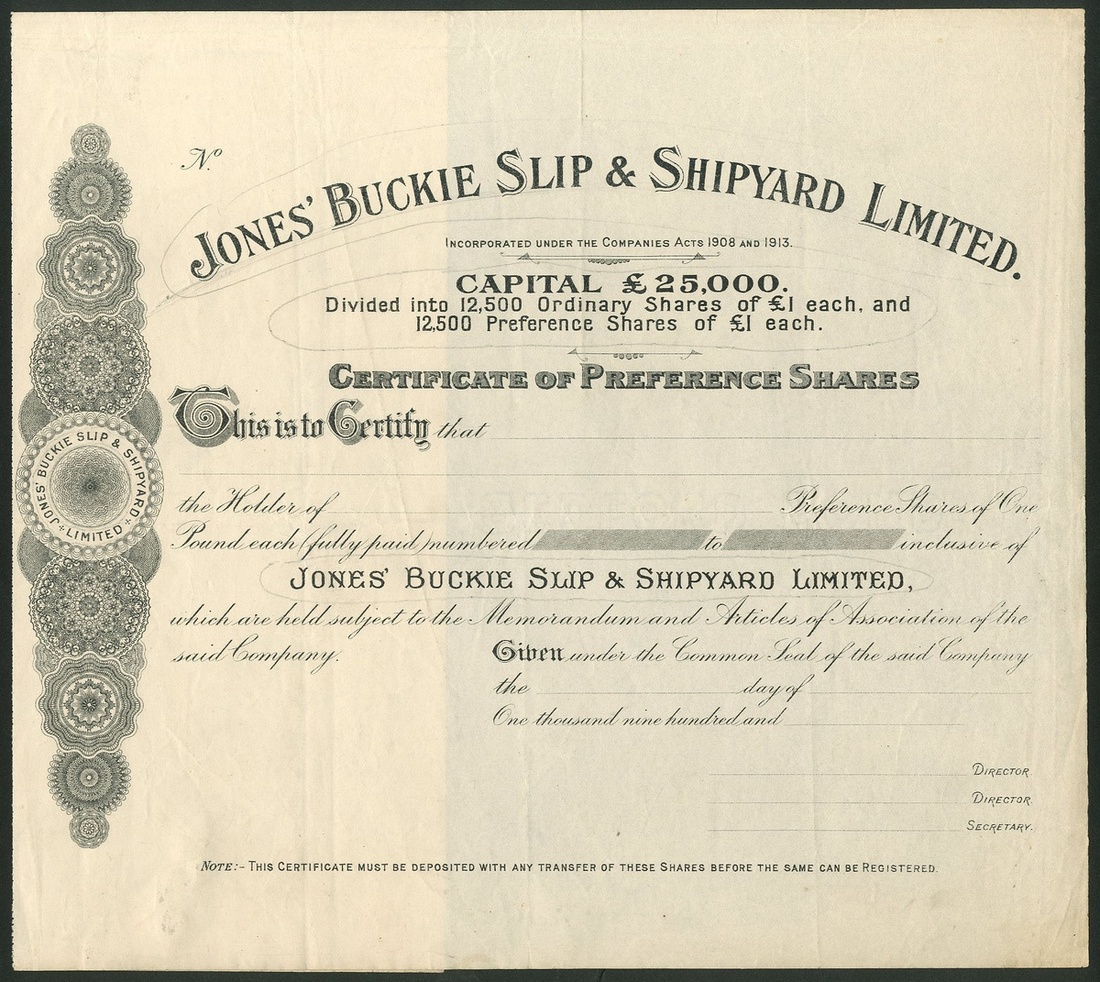 No.
JONES' BUCKIE SLIP & SHIPYARD LIMITED.
INCORPORATED UNDER THE COMPANIES ACTS 1908 AND 1913.
CAPITAL £25,000.
Divided into 12,500 Ordinary Shares of £1 each, and
12,500 Preference Shares of £1 each.
CERTIFICATE OF PREFERENCE SHARES
This is to Certify that
the Holder of Preference Shares of One
Pound each (fully paid) numbered to inclusive of
JONES' BUCKIE SLIP & SHIPYARD LIMITED,
which are held subject to the Memorandum and Articles of Association of the
said Company.
Given under the Common Seal of the said Company
the day of
One thousand nine hundred and
DIRECTOR.
DIRECTOR.
SECRETARY.
NOTE:- THIS CERTIFICATE MUST BE DEPOSITED WITH ANY TRANSFER OF THESE SHARES BEFORE THE SAME CAN BE REGISTERED.
JONES' BUCKIE SLIP & SHIPYARD
LIMITED